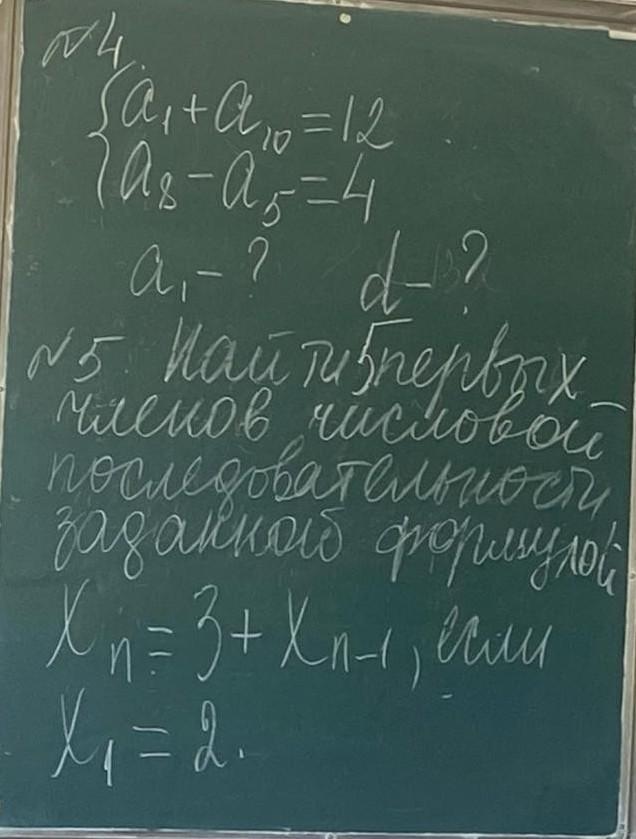 №4.
{a₁+a₁₀=12
a₈-a₅=4
a₁-? d-?
№5. Найти 5 первых
членов числовой
последовательности
заданной формулой
Xₙ=3+Xₙ₋₁, если
X₁=2.